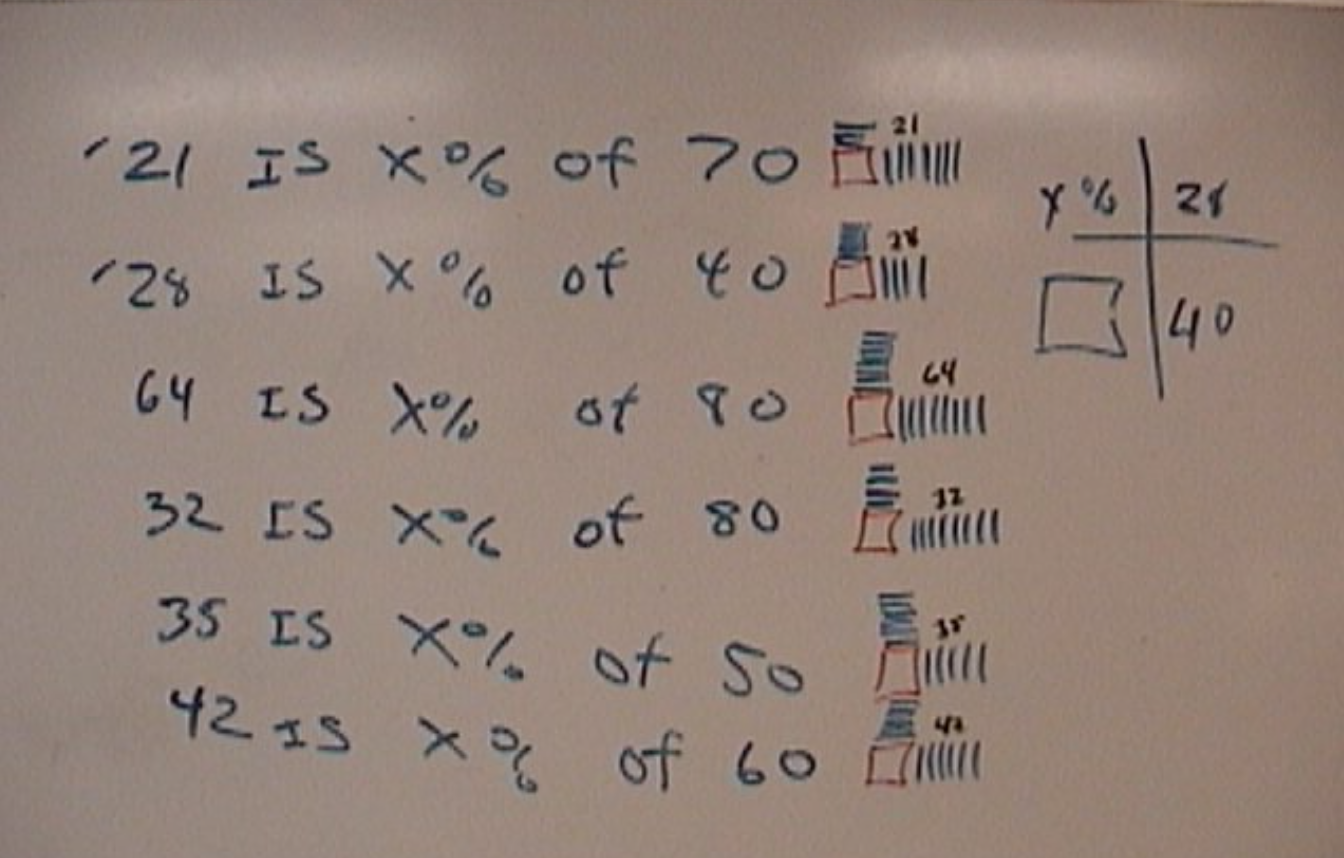 21 IS X% of 70 21
28 IS X% of 40 28
64 IS X% of 80 64
32 IS X% of 80 32
35 IS X% of 50 35
42 IS X% of 60 42
X% 28
40